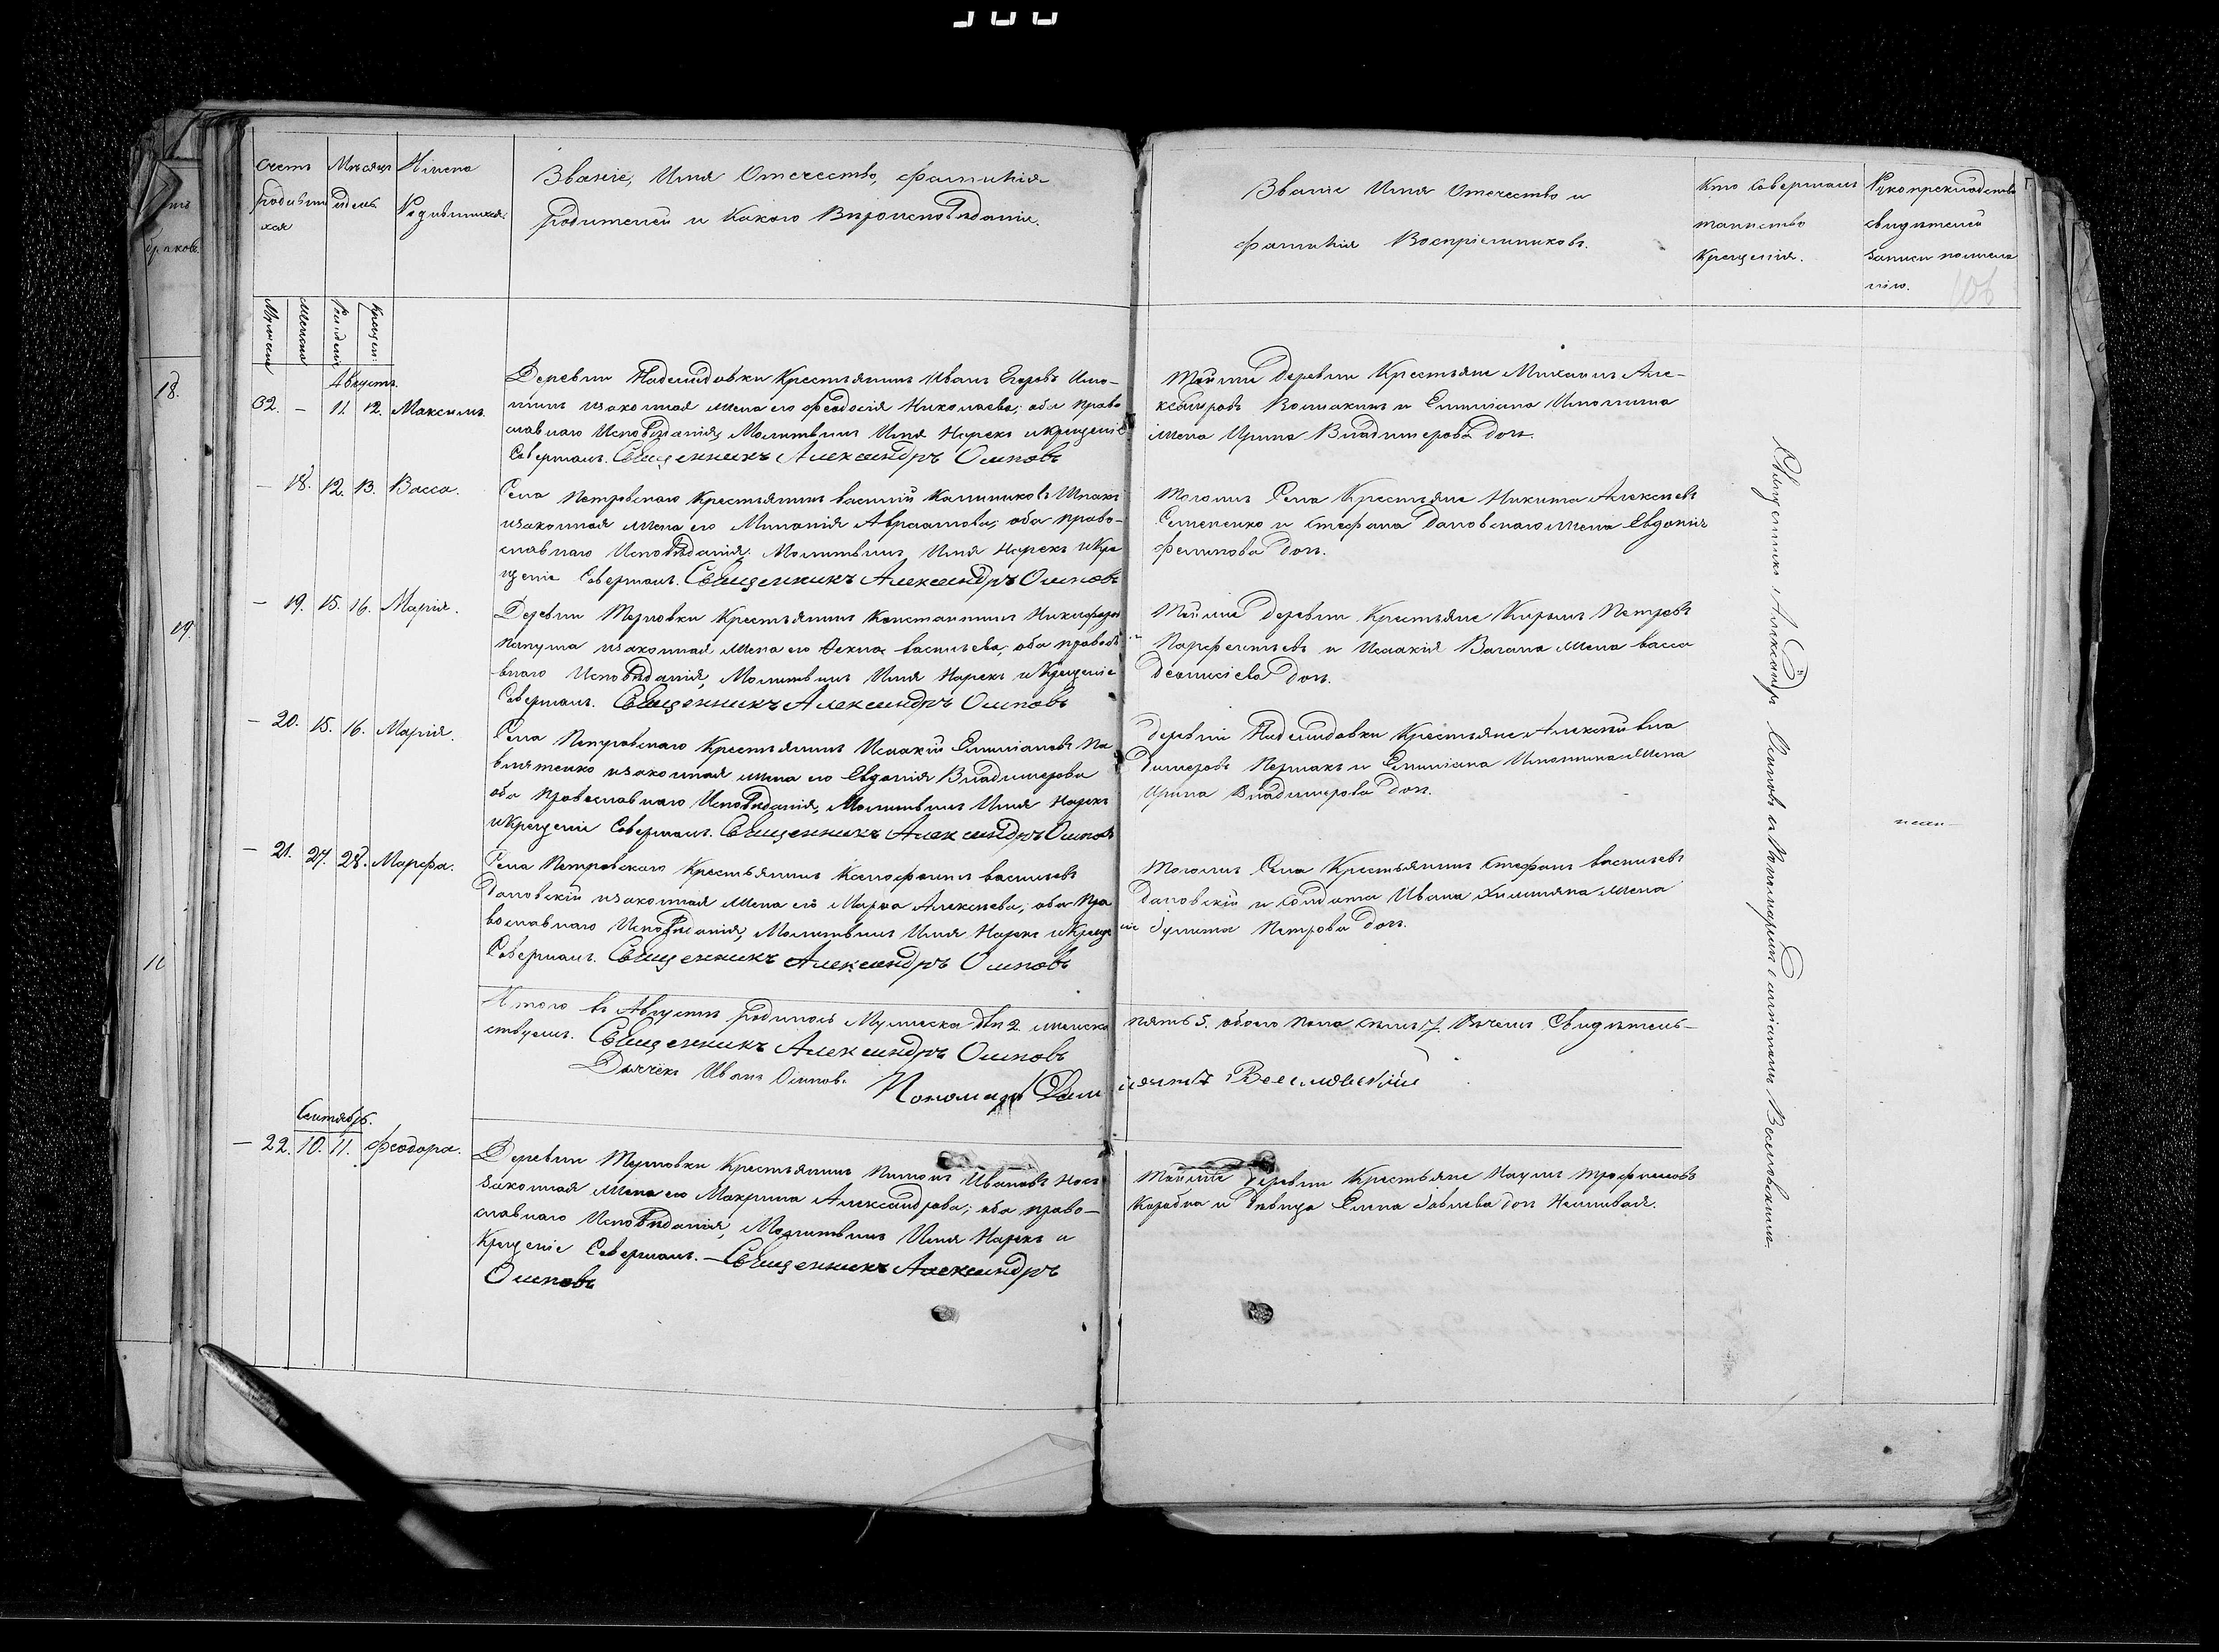 Счетъ родивши хся
Мужска Женска
Мѣсяцъ и день
Рожденія Крещен:
Имена Родившихся.
Званіе, Имя Отечество, фамилія
родителей и Какого Вѣроисповѣданія.
Званіе Имя Отечество и
фамилія Воспріемниковъ.
Кто Совершалъ
таинство
Крещенія.
Рукоприкладство
свидѣтелей
записи по желанію.
106
Августъ.
32. – 11. 12. Максимъ.
Деревни Надеждовки Крестьянинъ Иванъ Егоровъ
законная жена его Феодосія Николаева; оба право
славнаго Исповѣданія, Молитвилъ Имя Нарекъ и Крещеніе
Совершалъ. Священникъ Александръ Осиповъ
Тойже деревни Крестьяне Михаилъ Але-
ксандровъ и Емиліана
жена Ирина Владимерова доч.
– 18. 12. 13. Васса.
Села Петровскаго Крестьянинъ Василій Калиниковъ
законная жена его Миланія Авраамова; оба право-
славнаго Исповѣданія, Молитвилъ Имя Нарекъ и Кре
щеніе Совершалъ. Священникъ Александръ Осиповъ
Тогожъ Села Крестьяне Никита Алексѣевъ
Семененко и Стефана Дановскаго жена Евдокія
Филипова доч.
– 19. 15. 16. Марія.
Деревни Терновки Крестьянинъ Константинъ Никифоровъ
законная жена его Фекла Васильева, оба правосла
внаго Исповѣданія, Молитвилъ Имя Нарекъ и Крещеніе
Совершалъ. Священникъ Александръ Осиповъ
Тойже деревни Крестьяне Кирилъ Петровъ
Парфентьевъ и Исаакія Вагана жена Васса
Деонисіева доч.
– 20. 15. 16. Марія.
Села Петровскаго Крестьянинъ Исаакій Емиліановъ Па
влятенко законная жена его Евдокія Владимерова
оба Православнаго Исповѣданія, Молитвилъ Имя Нарекъ
и Крещеніе Совершалъ. Священникъ Александръ Осиповъ
Деревни Надеждовки Крестьяне Алексѣй Вла
димеровъ и Емиліана жена
Ирина Владимерова доч.
– 21. 27. 28. Марфа.
Села Петровскаго Крестьянинъ Ксенофонтъ Васильевъ
Дановскій законная жена его Марфа Алексѣева; оба Пра
вославнаго Исповѣданія, Молитвилъ Имя Нарекъ и Креще
Совершалъ. Священникъ Александръ Осиповъ
Тогожъ Села Крестьянинъ Стефанъ Васильевъ
Дановскій и Солдата Ивана жена
ніе Іулита Петрова доч.
Итого въ Августѣ родилось Мужеска два 2. женска пять 5. обоего пола семь 7. Въ чемъ Свидѣтель-
ствуемъ. Священникъ Александръ Осиповъ
Дьячекъ Иванъ Осиповъ
Пономарь Даміанъ
Сентябрь.
– 22. 10. 11. Феодора.
Деревни Терновки Крестьянинъ Пименъ Ивановъ
законная жена его Макрина Александрова; оба право-
славнаго Исповѣданія, Молитвилъ Имя Нарекъ и
Крещеніе Совершалъ. – Священникъ Александръ
Осиповъ
Тойже деревни Крестьяне Наумъ Трофимовъ
и дѣвица Елена доч
Священникъ Александръ Осиповъ съ Пономаремъ
18.
19.